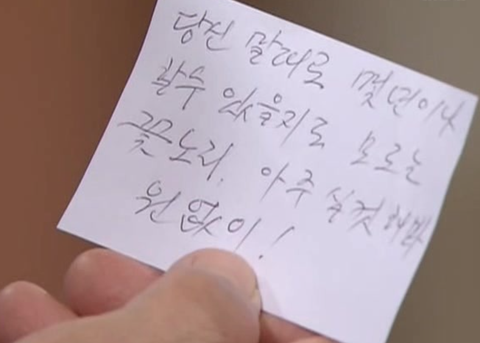 당신 말대로 몇년이나
할수 있을지도 모르는
꽃노리. 아주 실컷해봐
원없이!